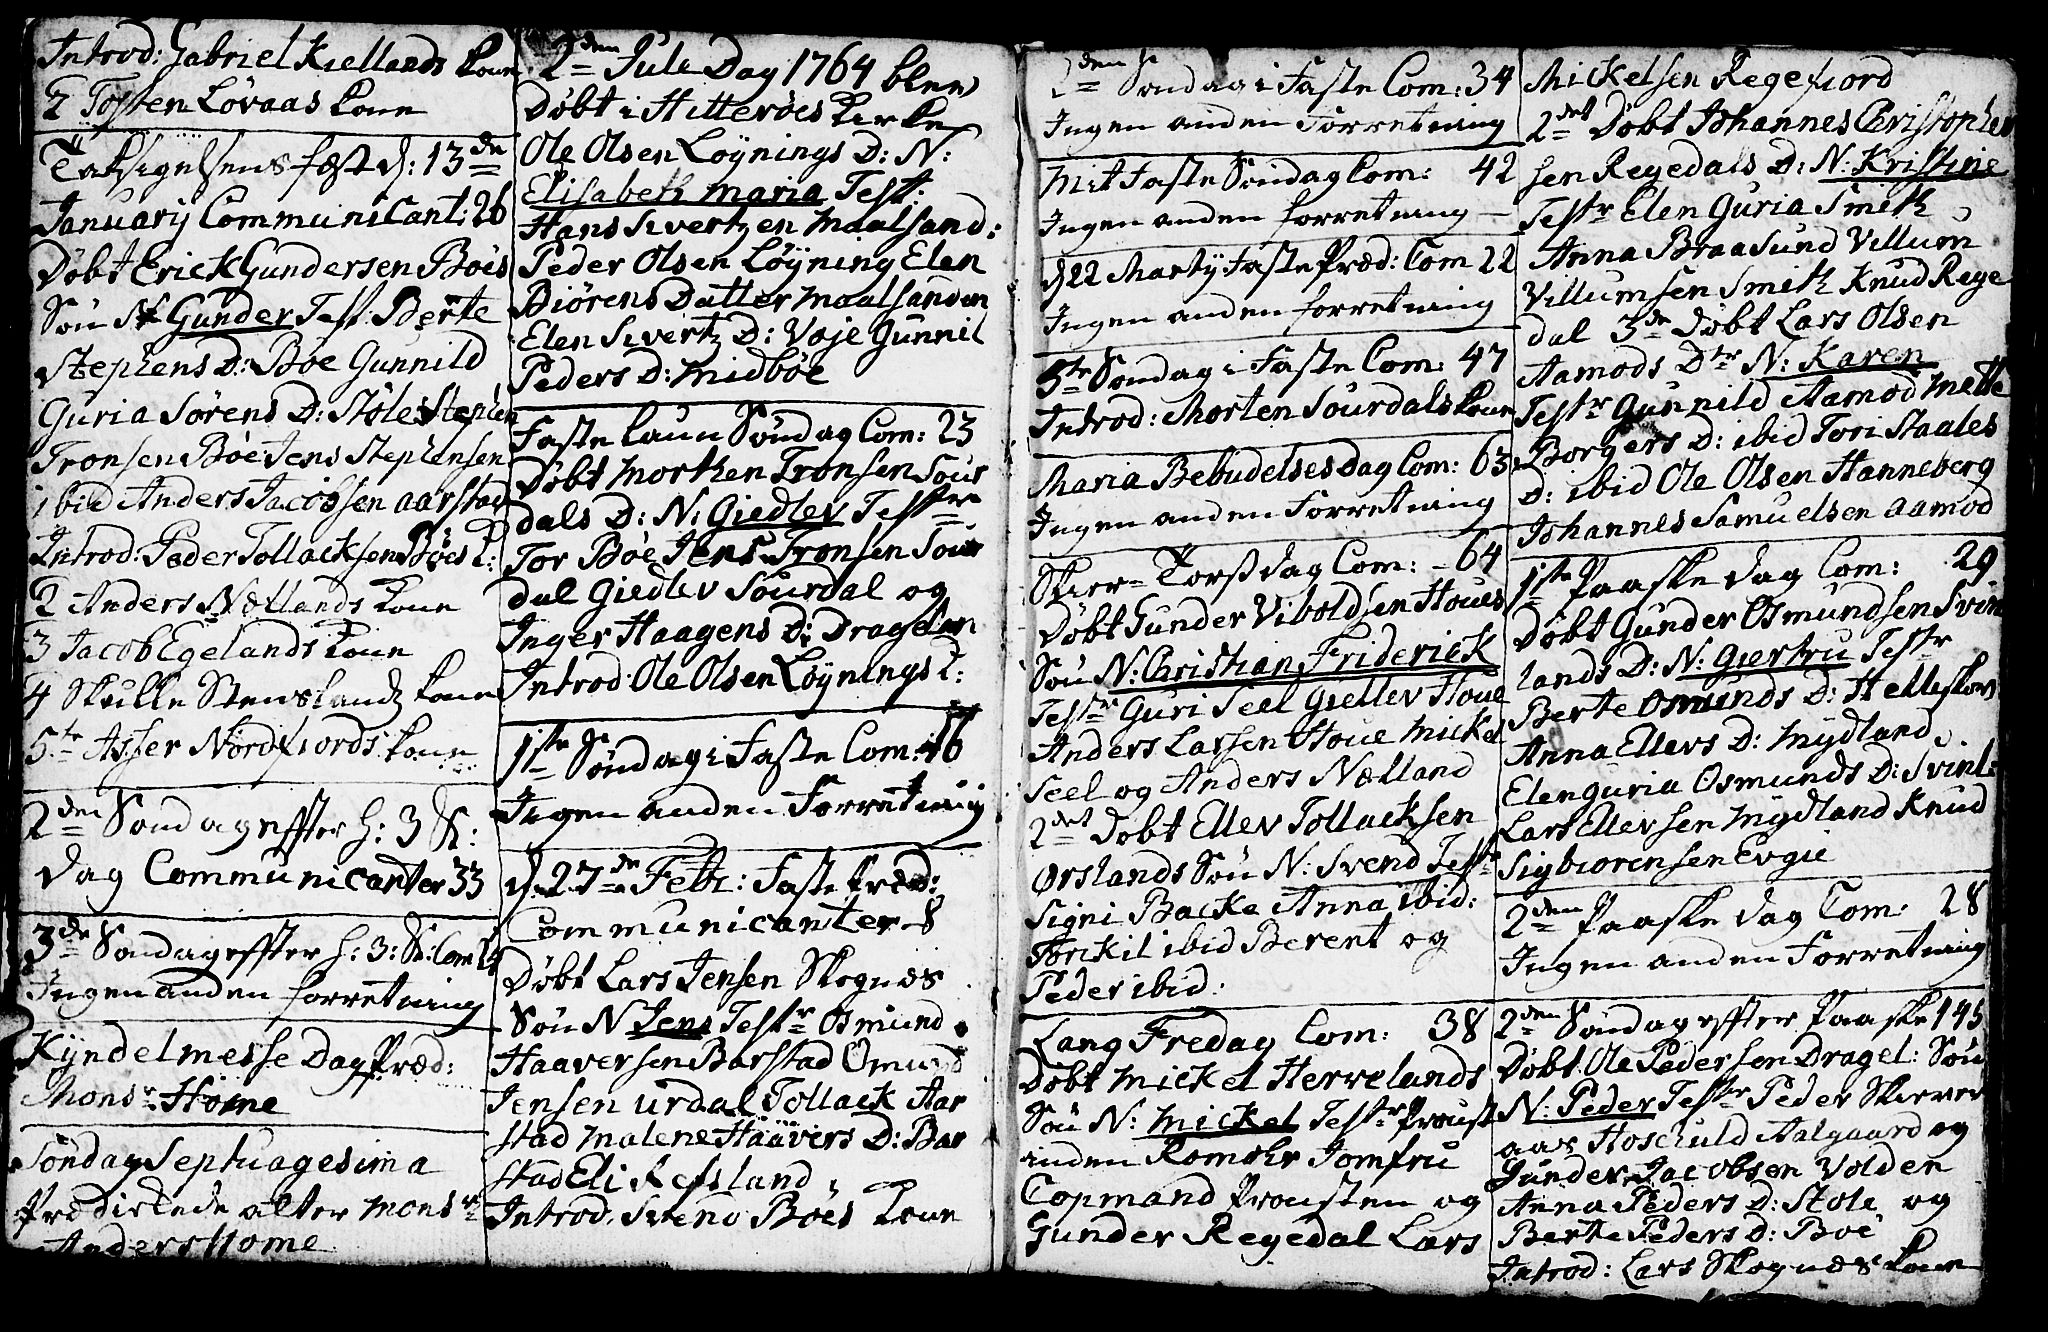 Introd: Gabriel Kiellands kone
2 Tosten Lövaas kone
Taksigelsens fæst d: 13de
Januarij Communicant: 26
Döbt Erick Gundersen Böes
Sön N Gunder Test: Berte
Stephens D: Böe Gunnild
Guria Sörens D: Stöle Stephen
Tronsen Böe Jens Stephensen
ibid Anders Jacobsen Aarstad
Introd: Peder Tollacksen Böes k:
2 Anders Nætlands kone
3 Jacob Egelands kone
4 Skulle Stenslands kone
5te Asser Nordfiords kone
2den Söndag effter h: 3 K:
Dag Communicanter 33
3de Söndag effter h: 3: K: Com 14
Ingen anden forretning
Kÿndelmesse Dag Præd:
Monsr Home
Söndag Septuagesima
Prædickede atter Monsr
Anders Home
2den Jule Dag 1764 blev
Döbt i Hitteröes Kirke
Ole Olsen Löÿnings D: N:
Elisabeth Maria Test:
Hans Sivertzen Maalsand:
Peder Olsen Löÿning Elen
Biörens Datter Maalsanden
Elen Sivertz D: Voje Gunnil
Peders D: Midböe
Faste Laun Söndag Com: 23
Döbt Morthen Tronsen Sour
dals D: N: Giedlev Testre
Tor Böe Jens Tronsen Sour
dal Giedlev Sourdal og
Inger Haagens D: Dragelan
Introd: Ole Olsen Löÿnings k:
1ste Söndag i Faste Com: 16
Ingen anden Forretning
d. 27de Febr: Faste Præd:
Communicanter 8
Döbt Lars Jensen Skognæs
Sön N Jens Testr Osmund
Haaversen Barstad Omund
Jensen Urdal Tollack Aar
stad Malene Haavers D: Bar
stad Eli Refsland
Introd: Svend Böes kone
2den Söndag i Faste Com: 34
Ingen anden Forretning
Mit Faste Söndag Com: 42
Ingen anden forretning
d 22 Martÿ Faste Præd: Com 22
Ingen anden forretning
5te Söndag i Faste Com: 47
Introd: Morten Sourdals kone
Maria Bebudelses Dag Com: 63
Ingen anden Forretning
Skier-Torssdag Com: 64
Döbt Gunder Viboldsen Houes
Sön N: Christian Friderick
Testr Guri Seel Giellev Houe
Anders Larsen Houe Mickel
Seel og Anders Nætland
2det Döbt Ellev Tollacksen
Ørslands Sön N: Svend Testr
Signi Backe Anna ibid:
Torkil ibid Berent og
Peder ibid:
Lang Fredag Com: 38
Döbt Mickel Hervelands
Sön N: Mickel Testr Proust
inden Romohr Jomfru
Copmand Prousten og
Gunder Regedal Lars
Mickelsen Regefiord
2det Döbt Johannes Christopher
sen Regedals D: N: Kristine
Testr Elen Guria Smith
Anna Braasund Villum
Villumsen Smith Knud Rege
dal 3de Döbt Lars Olsen
Aamods Dtr N: Karen
Testr Gunnild Aamod Mette
Borgers D: ibid Tori Staales
D: ibid Ole Olsen Hanneberg
Johannes Samuelsen Aamod
1ste Paaske Dag Com: 29
Döbt Gunder Osmundsen Svin
lands D: N: Giertru Testr
Berte Osmunds D: Helleskov
Anna Ellevs D: Mydland
Elen Guria Osmunds D: Svinl:
Lars Ellevsen Mydland Knud
Sigbiorensen Evgie
2den Paaske Dag Com: 28
Ingen anden Forretning
2den Söndag effter Paaske 145
Döbt Ole Pedersen Dragel: Sön
N: Peder Testr Peder Skierer
aas Hoschuld Aalgaard og
Gunder Jacobsen Volden
Anna Peders D: Stöle og
Berte Peders D: Böe
Introd: Lars Skognæs kone